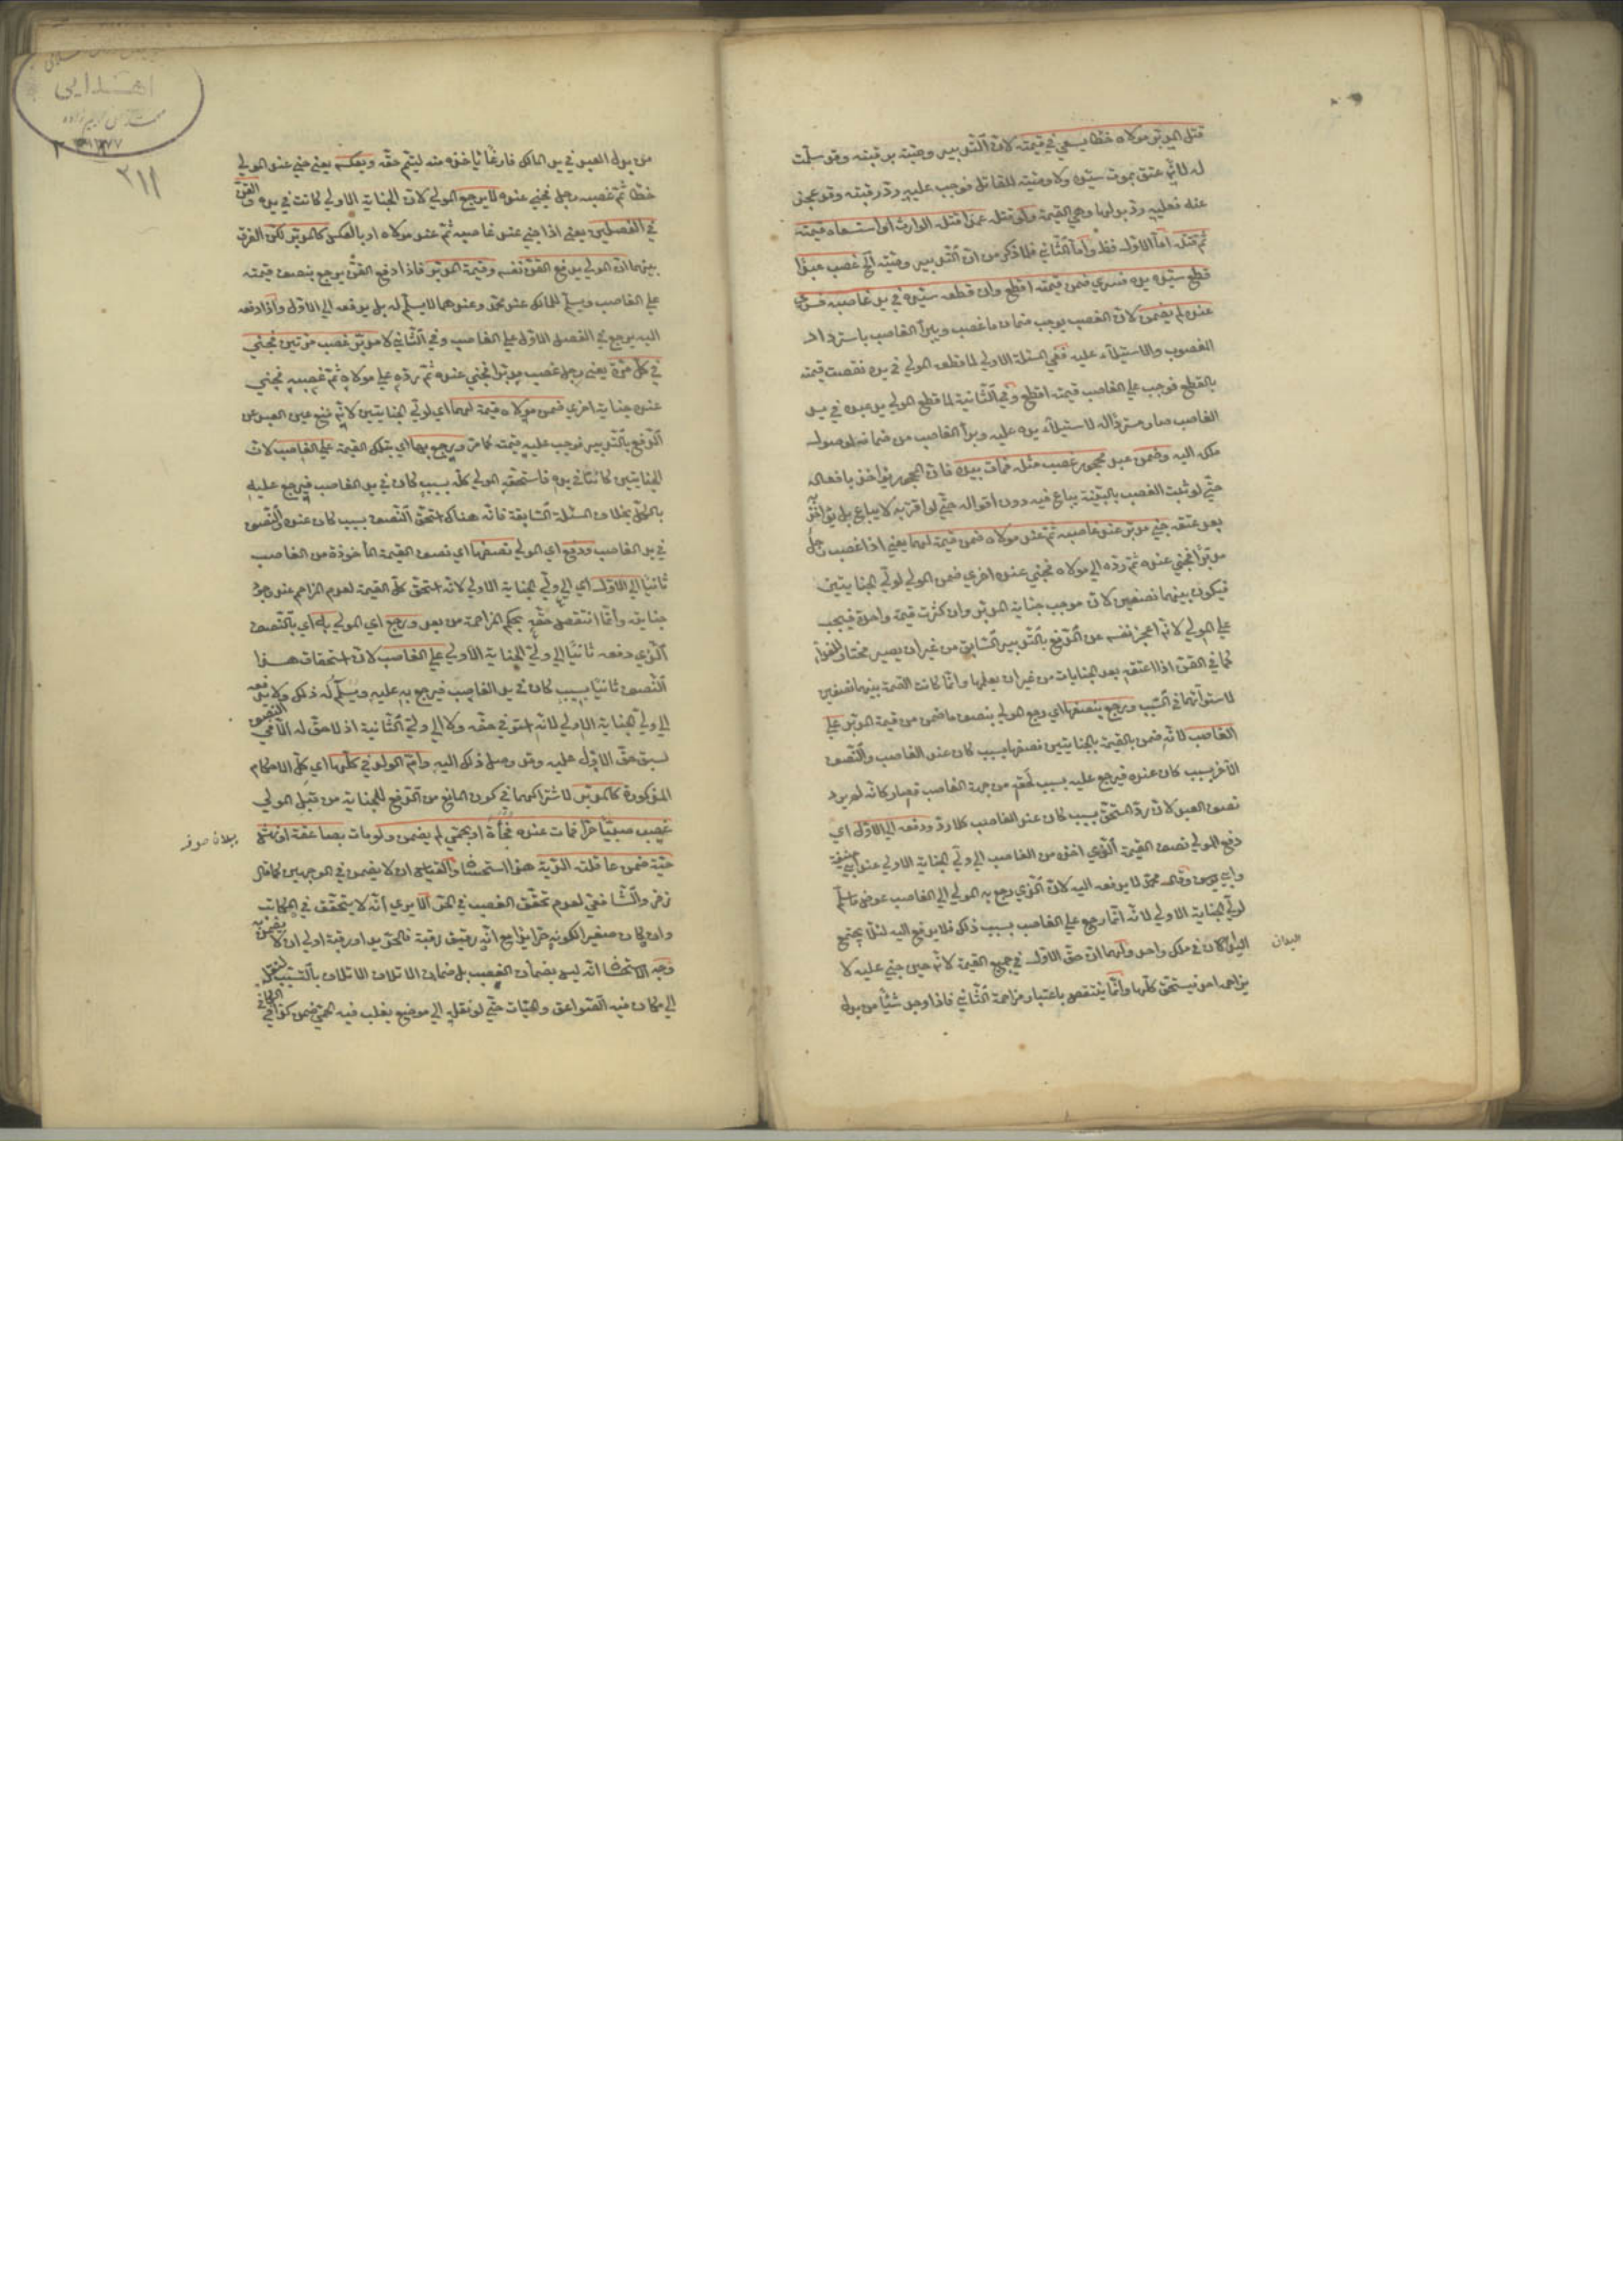 قتل المدبّر مولاه خطأ يسعى في قيمته لانّ التّدبير وصيّته برقبته وقد سلّمت
له لانّه عتق بموت سيّده ولا وصيّة للقاتل فوجب عليه ردّ رقبته وقد عجز
عنه فعليه ردّ بدلها وهي القيمة ولو قتله عمدا قتله الوارث او استسعاه قيمته
ثمّ قتله امّا الاوّل فظ وامّا الثّاني فلما ذكر من انّ التّدبير وصيّته الخ غصب عبدا
قطع سيّده يده فسرى ضمن قيمته اقطع وان قطعه سيّده في يد غاصبه فسرى
عنده لم يضمن لانّ الغصب يوجب ضمان ما غصب ويبرأ الغاصب باسترداد
المغصوب والاستيلاء عليه ففي المسئلة الاولى لما قطعه المولى في يده نقصت قيمته
بالقطع فوجب على الغاصب قيمته اقطع وفي الثّانية لما قطع المولى يد عبده في يد
الغاصب صار مستردّا له لاستيلاء يده عليه وبرأ الغاصب من ضمانه لوصول
ملكه اليه وضمن عبد محجور غصب مثله فمات بيده فانّ المحجور يؤاخذ بافعاله
حتّى لو ثبت الغصب بالبيّنة يباع فيه دون اقواله حتّى لو اقرّ به لا يباع بل يؤاخذ
بعد عتقه جنى مدبّر عند غاصبه ثمّ عند مولاه ضمن قيمته لهما يعني اذا غصب رجل
مدبّرا فجنى عنده ثمّ ردّه الى مولاه فجنى عنده اخرى ضمن المولى لوليّ الجنايتين
فيكون بينهما نصفين لانّ موجب جناية المدبّر وان كثرت قيمة واحدة فيجب
على المولى لانّه اعجز نفسه عن الدّفع بالتّدبير السّابق من غير ان يصير مختارا للفداء
كما في القنّ اذا اعتقه بعد الجنايات من غير ان يعلمها وانّما كانت القيمة بينهما نصفين
لاستوائهما في السّبب ويرجع بنصفها اي رجع المولى بنصف ما ضمن من قيمة المدبّر على
الغاصب لانّه ضمن بالقيمة بالجنايتين نصفها بسبب كان عند الغاصب والنّصف
الآخر بسبب كان عنده فيرجع عليه بسبب لحقه من جهة الغاصب فصار كانّه لم يردّ
نصف العبد لانّ ردّ المستحقّ بسبب كان عند الغاصب كلا ردّ ودفعه الى الاوّل اي
دفع المولى نصف القيمة الّذي اخذ من الغاصب الى وليّ الجناية الاولى عند ابي حنيفة
وابي يوسف وقال محمّد لا يدفعه اليه لانّ الّذي رجع به المولى الى الغاصب عوض ما سلّم
لوليّ الجناية الاولى لانّه انّما رجع على الغاصب بسبب ذلك فلا يدفع اليه لئلّا يجتمع
البدلان في ملك واحد ولهما انّ حقّ الاوّل في جميع القيمة لانّه حين جنى عليه لا
يزاحمه احد فيستحقّ كلّها وانّما ينتقص باعتبار مزاحمة الثّاني فاذا وجد شيئا من بدل
البدلان
٢١١
من بدل العبد في يد المالك فارغا يأخذه منه ليتمّ حقّه وبعكسه يعني جنى عند المولى
خطأ ثمّ غصبه رجل فجنى عنده لا يرجع المولى لانّ الجناية الاولى كانت في يده والقنّ
في الفصلين يعني اذا جنى عند غاصبه ثمّ عند مولاه او بالعكس كالمدبّر لكن الفرق
بينهما انّ المولى يدفع القنّ نفسه وقيمة المدبّر فاذا دفع القنّ يرجع بنصف قيمته
على الغاصب ويسلّم للمالك عند محمّد وعندهما لا يسلّم له بل يدفعه الى الاوّل واذا دفعه
اليه يرجع في الفصل الاوّل على الغاصب وفي الثّاني لا مدبّر غصب مرّتين فجنى
في كلّ مرّة يعني رجل غصب مدبّرا فجنى عنده ثمّ ردّه على مولاه ثمّ غصبه فجنى
عنده جناية اخرى ضمن مولاه قيمته لهما اي لوليّ الجنايتين لانّه منع عين العبد عن
الدّفع بالتّدبير فوجب عليه قيمته كما مرّ ويرجع بها اي بتلك القيمة على الغاصب لانّ
الجنايتين كانتا في يده فاستحقّه المولى كلّه بسبب كان في يد الغاصب فيرجع عليه
بالكلّ بخلاف المسئلة السّابقة فانّه هناك استحقّ النّصف بسبب كان عنده والنّصف
في يد الغاصب ودفع اي المولى نصفها اي نصف القيمة المأخوذة من الغاصب
ثانيا الى الاوّل اي الى وليّ الجناية الاولى لانّه استحقّ كلّ القيمة لعدم المزاحم عند وجود
جنايته وانّما انتقص حقّه بحكم المزاحمة من بعد ورجع اي المولى به اي بالنّصف
الّذي دفعه ثانيا الى وليّ الجناية الاولى على الغاصب لانّ استحقاق هذا
النّصف ثانيا بسبب كان في يد الغاصب فيرجع به عليه ويسلّم له ذلك ولا يدفعه
الى وليّ الجناية الاولى لانّه استوفى حقّه ولا الى وليّ الثّانية اذ لا حقّ له الّا في النّصف
لسبق حقّ الاوّل عليه وقد وصل ذلك اليه وامّ الولد في كلّها اي كلّ الاحكام
المذكورة كالمدبّر لاشتراكهما في كون المانع من الدّفع للجناية من قبل المولى
غصب صبيّا حرّا فمات عنده فجأة او بحمّى لم يضمن ولو مات بصاعقة او نهشة
حيّة ضمن عاقلته الدّية هذا استحسانا والقياس ان لا يضمن في الوجهين كما قال
زفر والشّافعي لعدم تحقّق الغصب في الحرّ الا يرى انّه لا يتحقّق في المكاتب
وان كان صغيرا لكونه حرّا يدا مع انّه رقيق رقبة فالحرّ يدا ورقبة اولى ان لا يضمن به
وجه الاستحسان انّه ليس بضمان الغصب بل ضمان الاتلاف بالتّسبيب لنقله
الى مكان فيه الصّواعق والحيّات حتّى لو نقله الى موضع يغلب فيه الحمّى ضمن كذا في الكافي